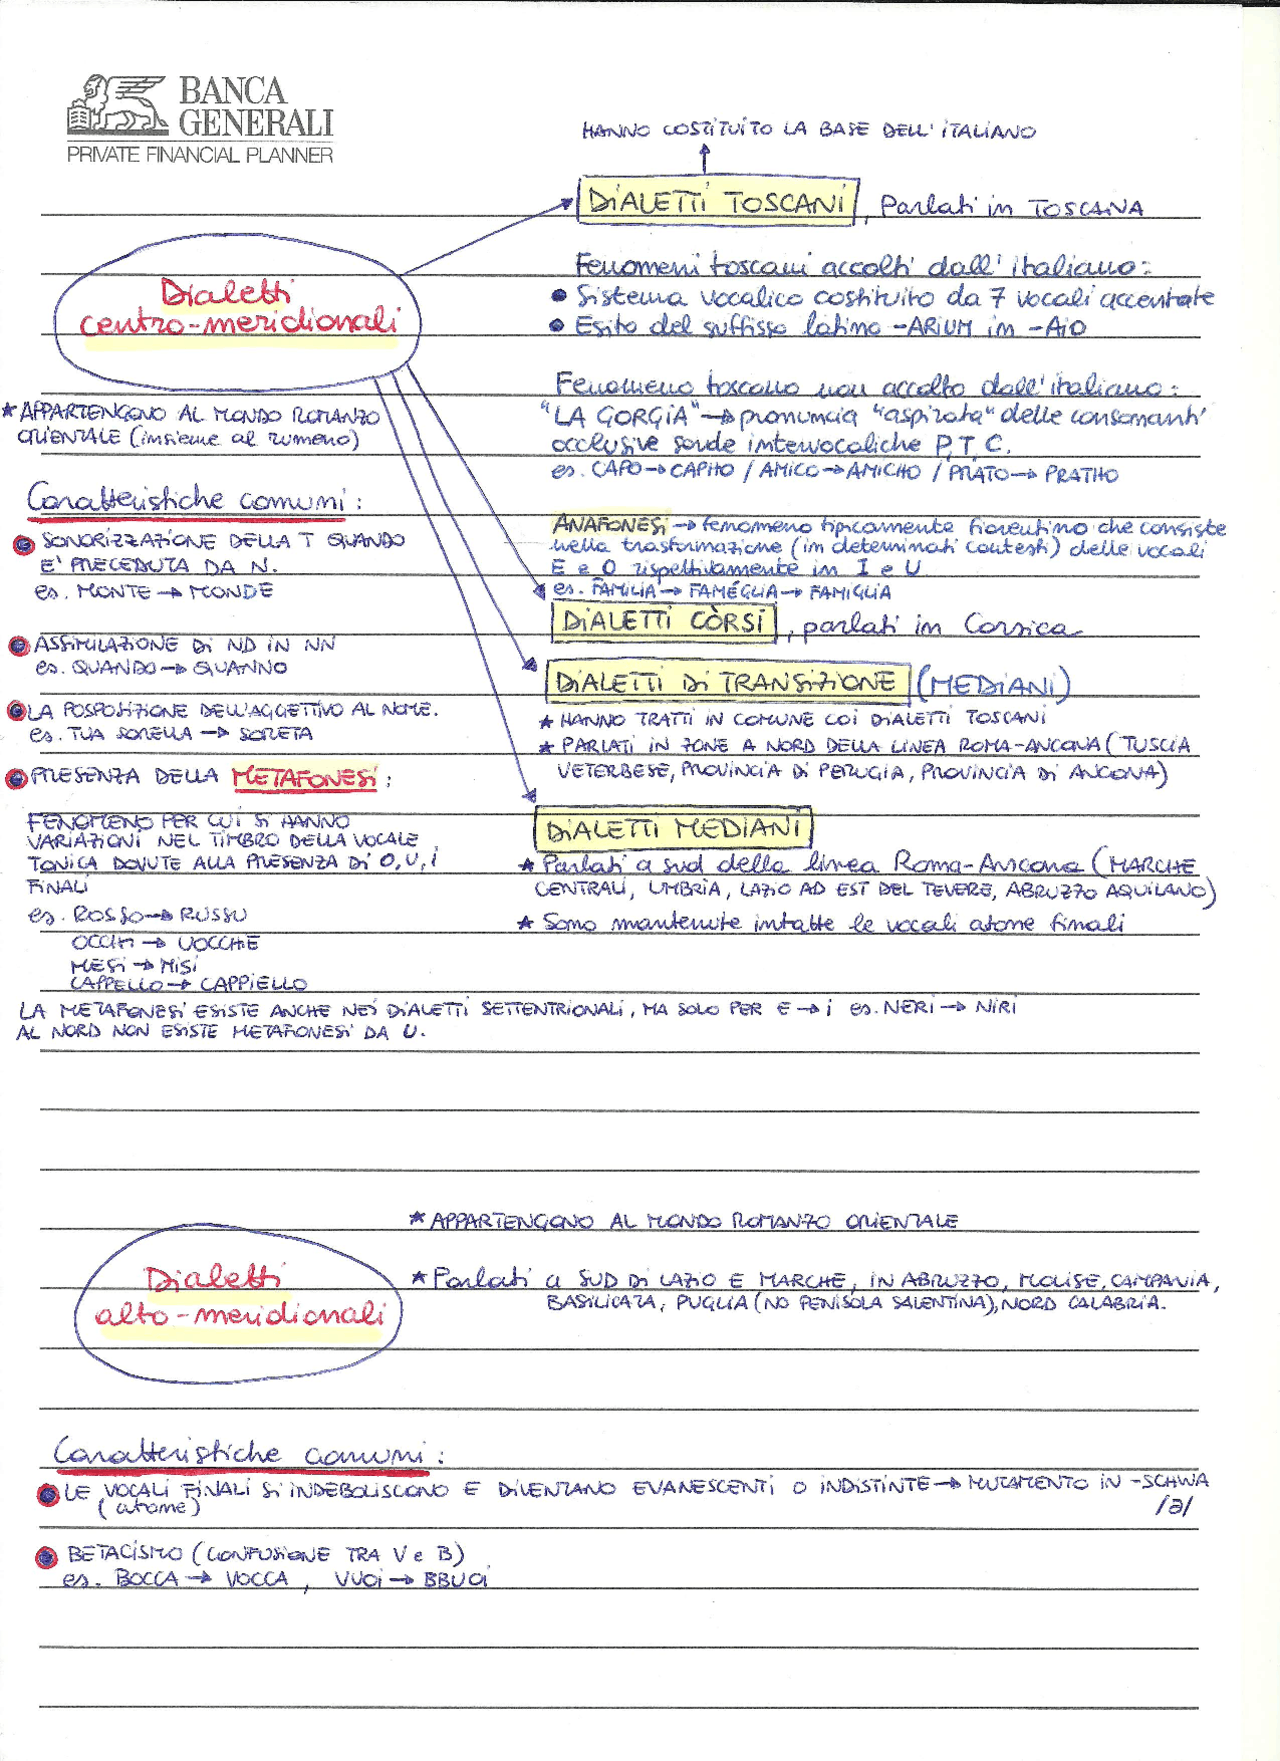 BANCA
GENERALI
PRIVATE FINANCIAL PLANNER
HANNO COSTITUITO LA BASE DELL'ITALIANO
DIALETTI TOSCANI, Parlati in TOSCANA
Dialetti
centro-meridionali
Fenomeni toscani accolti dall'italiano:
• Sistema vocalico costituito da 7 vocali accentate
• Esito del suffisso latino -ARIUM in -AIO
Fenomeno toscano non accolto dall'italiano:
"LA GORGIA" → pronuncia "aspirata" delle consonanti
occlusive sorde intervocaliche P, T, C.
es. CAPO → CAPHO / AMICO → AMICHO / PRATO → PRATHO
★ APPARTENGONO AL MONDO ROMANZO
ORIENTALE (insieme al rumeno)
Caratteristiche comuni:
• SONORIZZAZIONE DELLA T QUANDO
E' PRECEDUTA DA N.
es. MONTE → MONDE
• ASSIMILAZIONE DI ND IN NN
es. QUANDO → QUANNO
• LA POSPOSIZIONE DELL'AGGETTIVO AL NOME.
es. TUA SORELLA → SORETA
• PRESENZA DELLA METAFONESI:
FENOMENO PER CUI SI HANNO
VARIAZIONI NEL TIMBRO DELLA VOCALE
TONICA DOVUTE ALLA PRESENZA DI O, U, I
FINALI
es. ROSSO → RUSSU
OCCHI → UOCCHE
MESI → MISI
CAPPELLO → CAPPIELLO
ANAFONESI → fenomeno tipicamente fiorentino che consiste
nella trasformazione (in determinati contesti) delle vocali
E e O rispettivamente in I e U
es. FAMILIA → FAMÉGLIA → FAMIGLIA
DIALETTI CÒRSI, parlati in Corsica
DIALETTI DI TRANSIZIONE (MEDIANI)
★ HANNO TRATTI IN COMUNE COI DIALETTI TOSCANI
★ PARLATI IN ZONE A NORD DELLA LINEA ROMA-ANCONA (TUSCIA
VETERBESE, PROVINCIA DI PERUGIA, PROVINCIA DI ANCONA)
DIALETTI MEDIANI
★ Parlati a sud della linea Roma-Ancona (MARCHE
CENTRALI, UMBRIA, LAZIO AD EST DEL TEVERE, ABRUZZO AQUILANO)
★ Sono mantenute intatte le vocali atone finali
LA METAFONESI ESISTE ANCHE NEI DIALETTI SETTENTRIONALI, MA SOLO PER E → I es. NERI → NIRI
AL NORD NON ESISTE METAFONESI DA U.
Dialetti
alto-meridionali
★ APPARTENGONO AL MONDO ROMANZO ORIENTALE
★ Parlati a SUD DI LAZIO E MARCHE, IN ABRUZZO, MOLISE, CAMPANIA,
BASILICATA, PUGLIA (NO PENISOLA SALENTINA), NORD CALABRIA.
Caratteristiche comuni:
• LE VOCALI FINALI SI INDEBOLISCONO E DIVENTANO EVANESCENTI O INDISTINTE → MUTAMENTO IN -SCHWA
(atone) /ə/
• BETACISMO (CONFUSIONE TRA V e B)
es. BOCCA → VOCCA, VUOI → BBUOI